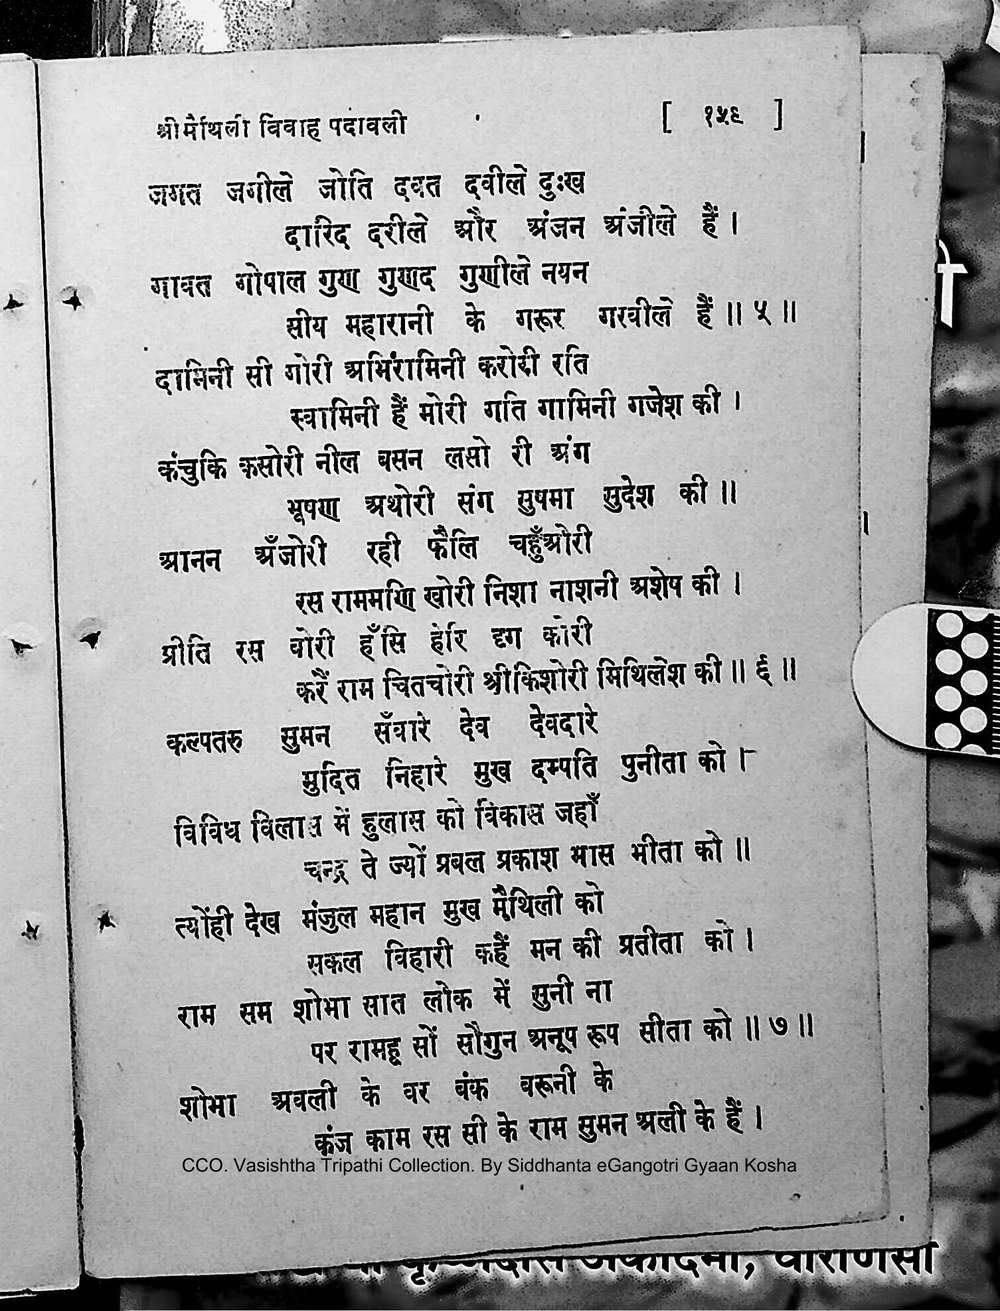 श्रीमैथिली विवाह पदावली [ १५९ ]
जगत जगीले जोति दवत दवीले दुःख
दारिद दरीले और अंजन अंजीले हैं ।
गावत गोपाल गुण गुणद गुणीले नयन
सीय महारानी के गरूर गरवीले हैं ॥ ५ ॥
दामिनी सी गोरी अभिरामिनी करोरी रति
स्वामिनी हैं मोरी गति गामिनी गजेश की ।
कंचुकि कसोरी नील वसन लसो री अंग
भूषण अथोरी संग सुषमा सुदेश की ॥
आनन अँजोरी रही फैलि चहुँओरी
रस राममणि खोरी निशा नाशनी अशेष की ।
प्रीति रस वोरी हँसि हेरि दृग कोरी
करैं राम चितचोरी श्रीकिशोरी मिथिलेश की ॥ ६ ॥
कल्पतरु सुमन सँवारे देव देवदारे
मुदित निहारे मुख दम्पति पुनीता को ।
विविध विलास में हुलास को विकास जहाँ
चन्द्र ते ज्यों प्रबल प्रकाश भास भीता को ॥
त्योंही देख मंजुल महान मुख मैथिली को
सकल विहारी कहैं मन की प्रतीता को ।
राम सम शोभा सात लोक में सुनी ना
पर रामहू सों सौगुन अनूप रूप सीता को ॥ ७ ॥
शोभा अवली के वर बंक बरूनी के
कंज काम रस सी के राम सुमन अली के हैं ।
CCO. Vasishtha Tripathi Collection. By Siddhanta eGangotri Gyaan Kosha
कृष्णदास अकादमी, वाराणसी